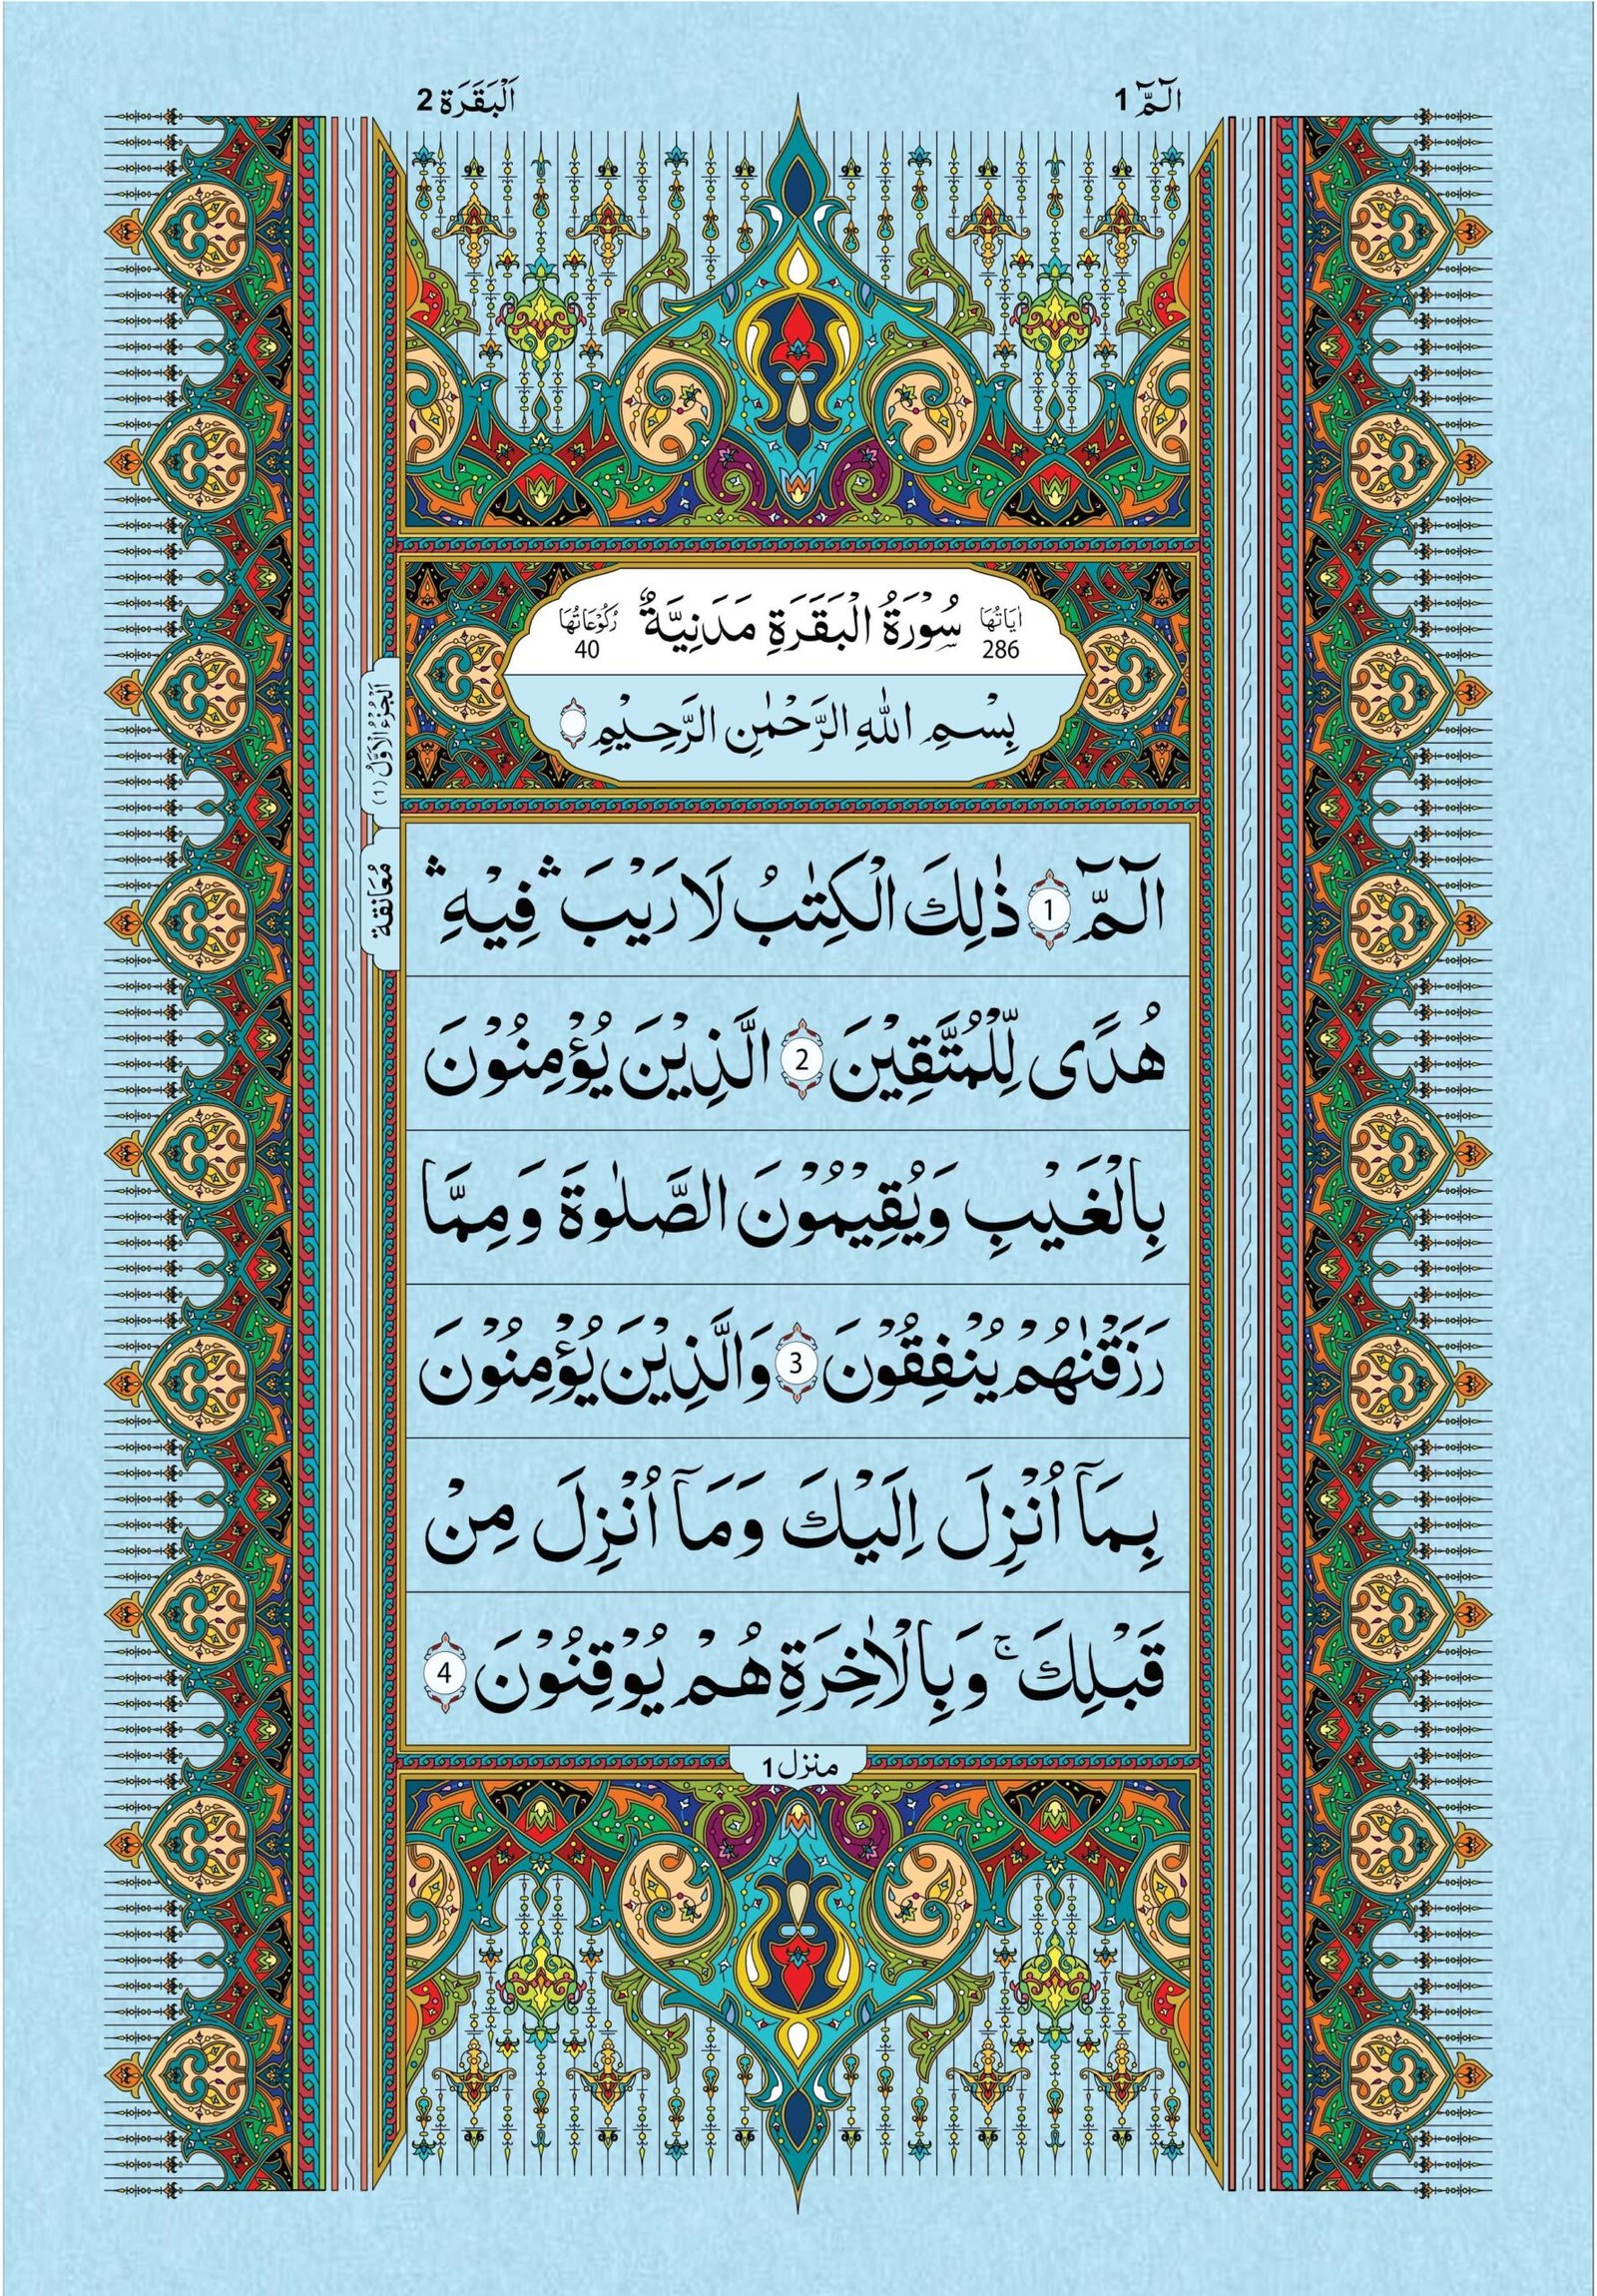 الٓمّٓ 1
اَلْبَقَرَة 2
اٰيَاتُهَا
286
سُوْرَةُ الْبَقَرَةِ مَدَنِيَّةٌ
رُكُوْعَاتُهَا
40
بِسْمِ اللّٰهِ الرَّحْمٰنِ الرَّحِيْمِ
اَلْجُزْءُ الْاَوَّلُ (١)
مُعَانقة
الٓمّٓ 1 ذٰلِكَ الْكِتٰبُ لَا رَيْبَ ۛ فِيْهِ ۛ
هُدًى لِّلْمُتَّقِيْنَ 2 الَّذِيْنَ يُؤْمِنُوْنَ
بِالْغَيْبِ وَيُقِيْمُوْنَ الصَّلٰوةَ وَمِمَّا
رَزَقْنٰهُمْ يُنْفِقُوْنَ 3 وَالَّذِيْنَ يُؤْمِنُوْنَ
بِمَآ اُنْزِلَ اِلَيْكَ وَمَآ اُنْزِلَ مِنْ
قَبْلِكَ ۚ وَبِالْاٰخِرَةِ هُمْ يُوْقِنُوْنَ 4
منزل 1